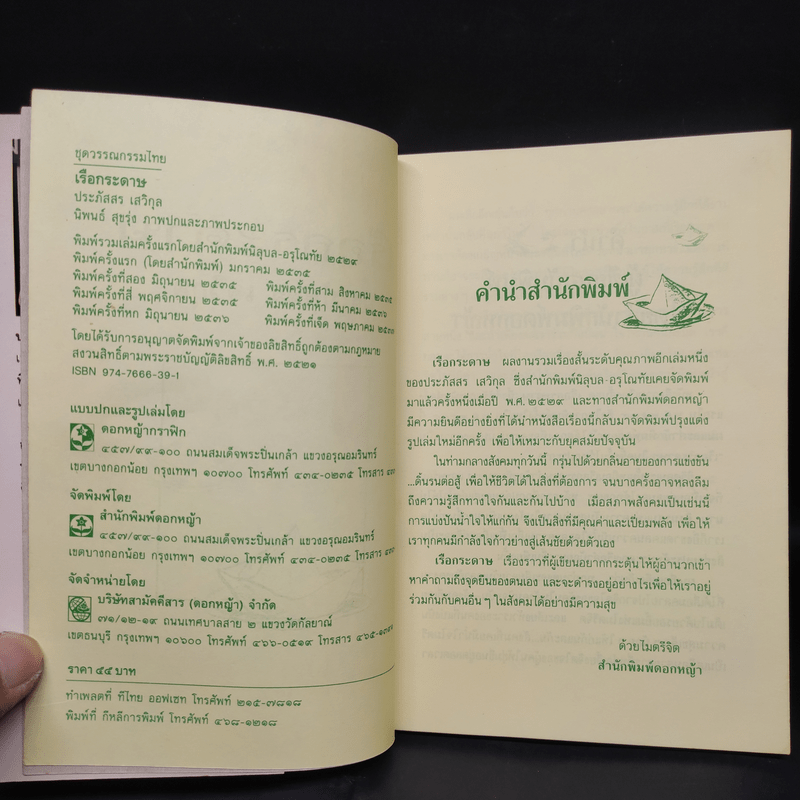 ชุดวรรณกรรมไทย
เรือกระดาษ
ประภัสสร เสวิกุล
นิพนธ์ สุขรุ่ง ภาพปกและภาพประกอบ
พิมพ์รวมเล่มครั้งแรกโดยสำนักพิมพ์นิลุบล-อรุโณทัย ๒๕๒๙
พิมพ์ครั้งแรก (โดยสำนักพิมพ์) มกราคม ๒๕๓๕
พิมพ์ครั้งที่สอง มิถุนายน ๒๕๓๕ พิมพ์ครั้งที่สาม สิงหาคม ๒๕๓๕
พิมพ์ครั้งที่สี่ พฤศจิกายน ๒๕๓๕ พิมพ์ครั้งที่ห้า มีนาคม ๒๕๓๖
พิมพ์ครั้งที่หก มิถุนายน ๒๕๓๖ พิมพ์ครั้งที่เจ็ด พฤษภาคม
โดยได้รับการอนุญาตจัดพิมพ์จากเจ้าของลิขสิทธิ์ถูกต้องตามกฎหมาย
สงวนสิทธิ์ตามพระราชบัญญัติลิขสิทธิ์ พ.ศ. ๒๕๒๑
ISBN 974-7666-39-1
แบบปกและรูปเล่มโดย
ดอกหญ้ากราฟิก
๔๕๗/๙๙-๑๐๐ ถนนสมเด็จพระปิ่นเกล้า แขวงอรุณอมรินทร์
เขตบางกอกน้อย กรุงเทพฯ ๑๐๗๐๐ โทรศัพท์ ๔๓๔-๐๒๓๕ โทรสาร
จัดพิมพ์โดย
สำนักพิมพ์ดอกหญ้า
๔๕๗/๙๙-๑๐๐ ถนนสมเด็จพระปิ่นเกล้า แขวงอรุณอมรินทร์
เขตบางกอกน้อย กรุงเทพฯ ๑๐๗๐๐ โทรศัพท์ ๔๓๔-๐๒๓๕ โทรสาร
จัดจำหน่ายโดย
บริษัทสามัคคีสาร (ดอกหญ้า) จำกัด
๓๑/๑๒-๑๙ ถนนเทศบาลสาย ๒ แขวงวัดกัลยาณ์
เขตธนบุรี กรุงเทพฯ ๑๐๖๐๐ โทรศัพท์ ๔๖๖-๐๕๑๙ โทรสาร
ราคา ๕๕ บาท
ทำเพลตที่ ทีไทย ออฟเซท โทรศัพท์ ๒๑๕-๗๘๑๘
พิมพ์ที่ กีหลีการพิมพ์ โทรศัพท์ ๔๖๘-๑๒๑๘
คำนำสำนักพิมพ์
เรือกระดาษ ผลงานรวมเรื่องสั้นระดับคุณภาพอีกเล่มหนึ่ง
ของประภัสสร เสวิกุล ซึ่งสำนักพิมพ์นิลุบล-อรุโณทัยเคยจัดพิมพ์
มาแล้วครั้งหนึ่งเมื่อปี พ.ศ. ๒๕๒๙ และทางสำนักพิมพ์ดอกหญ้า
มีความยินดีอย่างยิ่งที่ได้นำหนังสือเรื่องนี้กลับมาจัดพิมพ์ปรุงแต่ง
รูปเล่มใหม่อีกครั้ง เพื่อให้เหมาะกับยุคสมัยปัจจุบัน
ในท่ามกลางสังคมทุกวันนี้ กรุ่นไปด้วยกลิ่นอายของการแข่งขัน
...ดิ้นรนต่อสู้ เพื่อให้ชีวิตได้ในสิ่งที่ต้องการ จนบางครั้งอาจหลงลืม
ถึงความรู้สึกทางใจกันและกันไปบ้าง เมื่อสภาพสังคมเป็นเช่นนี้
การแบ่งปันน้ำใจให้แก่กัน จึงเป็นสิ่งที่มีคุณค่าและเปี่ยมพลัง เพื่อให้
เราทุกคนมีกำลังใจก้าวย่างสู่เส้นชัยด้วยตัวเอง
เรือกระดาษ เรื่องราวที่ผู้เขียนอยากกระตุ้นให้ผู้อ่านวกเข้า
หาคำถามถึงจุดยืนของตนเอง และจะดำรงอยู่อย่างไรเพื่อให้เราอยู่
ร่วมกันกับคนอื่นๆ ในสังคมได้อย่างมีความสุข
ด้วยไมตรีจิต
สำนักพิมพ์ดอกหญ้า